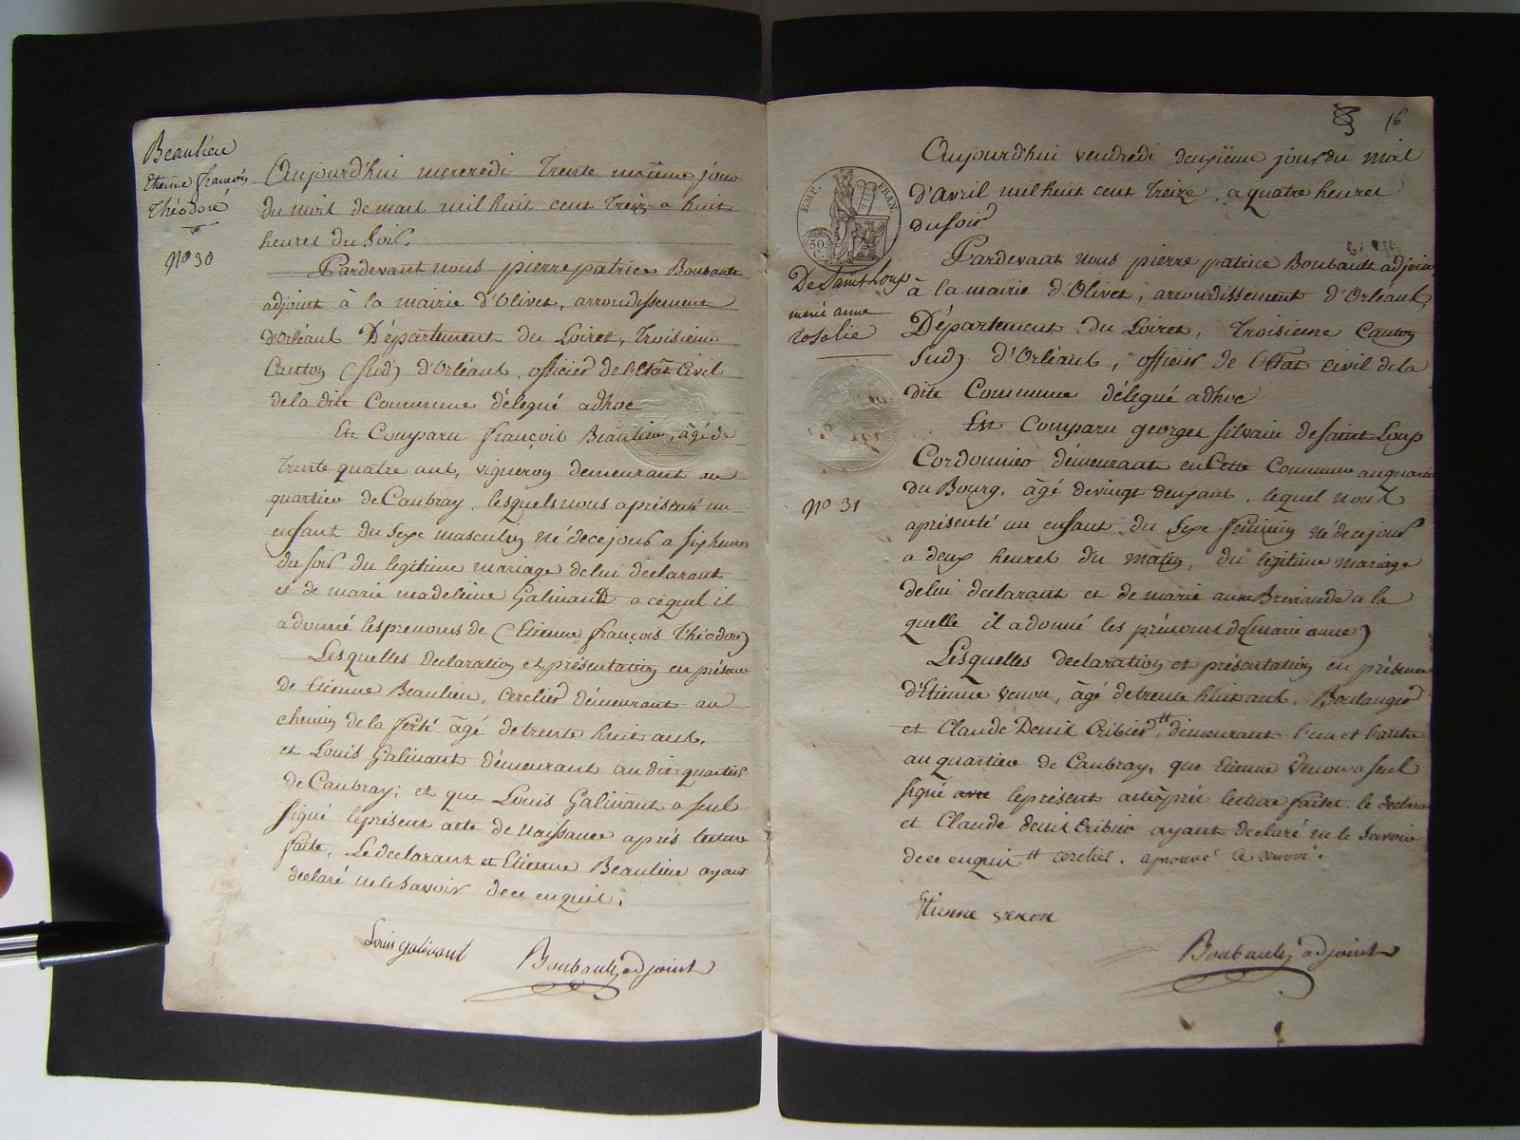 Beaulieu
Etienne françois
Théodore
N° 30
Aujourd'hui mercredi Trente unième jour
du mois de mars mil huit cent Treize a huit
heures du soir.
Pardevant nous pierre patrice Boubault
adjoint à la mairie d'Olivet, arrondissement
d'Orléans Département du Loiret, Troisieme
Canton (sud) d'Orléans, officier de l'état Civil
de la dite Commune délegué adhoc
Est Comparu françois Beaulieu, âgé de
trente quatre ans, vigneron demeurant au
quartier de Caubray, lesquels nous a présenté un
enfant du sexe masculin né de ce jour a six heures
du soir du legitime mariage de lui declarant
et de marie madeleine Galinand a cequel il
a donné les prenoms de (Etienne françois Théodore)
Lesquelles declaration et présentation en présence
de Etienne Beaulieu, Cerclier démeurant au
chemin de la ferté âgé de trente huit ans,
et Louis Galinant démeurant au dit quartier
de Caubray; et que Louis Galinant a seul
signé le présent acte de naissance après lecture
faite, Le declarant et Etienne Beaulieu ayant
declaré ne le savoir de ce enquis.
Louis galinant Boubault adjoint
16
EMP. FRAN.
50
De Saint Loup
marie anne
rosalie
N° 31
Aujourd'hui vendredi deuxième jour du mois
d'Avril mil huit cent Treize, a quatre heures
du soir
Pardevant nous pierre patrice Boubault adjoint
à la mairie d'Olivet, arrondissement d'Orléans,
Département du Loiret, Troisieme Canton
Sud) d'Orléans, officier de l'Etat civil de la
dite Commune délegué adhoc
Est Comparu georges silvain de saint Loup
Cordonnier démeurant en Cette Commune au quartier
du Bourg, âgé de vingt deux ans, lequel nous
a présenté un enfant du sexe feminin né de ce jour
a deux heures du matin, du légitime mariage
de lui declarant et de marie anne a la
quelle il a donné les prénoms de (marie anne)
Lesquelles declaration et présentation en présence
d'Etienne venon, âgé de trente huit ans, Boulanger
et Claude Denis Cribier, demeurant l'un et l'autre
au quartier de Caubray, que Etienne Venon a seul
signé avec le présent acte après lecture faite, le declarant
et Claude denis cribier ayant declaré ne le savoir
de ce enquis tt cerclier. aprouvé le renvoi.
Etienne venon
Boubault adjoint